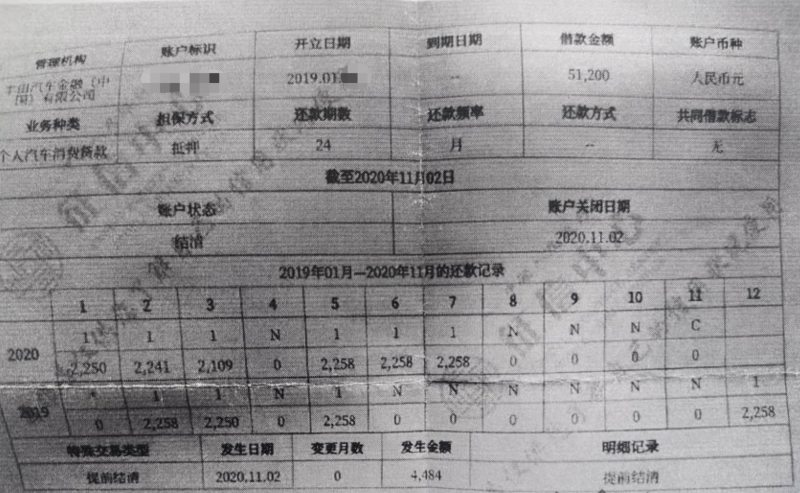 管理机构 账户标识 开立日期 到期日期 借款金额 账户币种
丰田汽车金融（中国）有限公司 2019.01. -- 51,200 人民币元
业务种类 担保方式 还款期数 还款频率 还款方式 共同借款标志
个人汽车消费贷款 抵押 24 月 -- 无
截至2020年11月02日
账户状态 账户关闭日期
结清 2020.11.02
2019年01月—2020年11月的还款记录
1 2 3 4 5 6 7 8 9 10 11 12
2020
1 1 1 N 1 1 1 N N N C
2,250 2,241 2,109 0 2,258 2,258 2,258 0 0 0 0
2019
* 1 1 N 1 N N N N N N 1
0 2,258 2,250 0 2,258 0 0 0 0 0 0 2,258
特殊交易类型 发生日期 变更月数 发生金额 明细记录
提前结清 2020.11.02 0 4,484 提前结清
征信中心